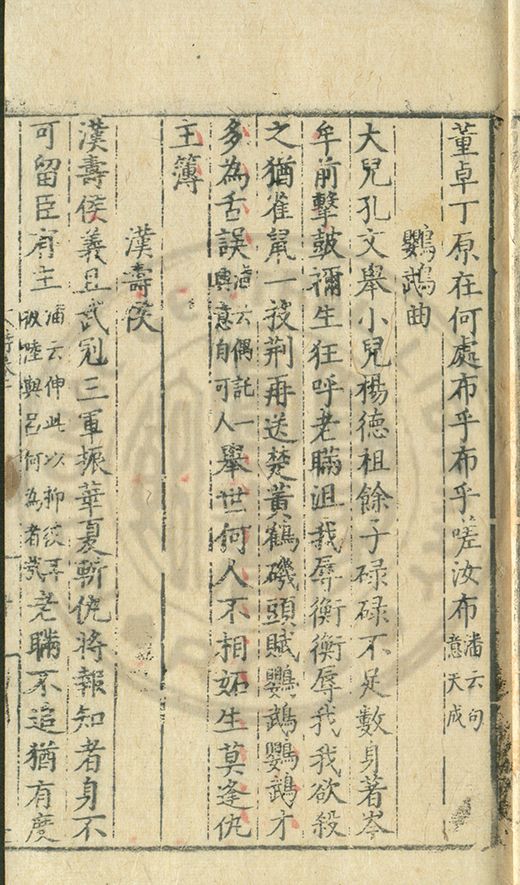 董卓丁原在何處布乎布乎嗟汝布潘云句意天成
鸚鵡曲
大兒孔文舉小兒楊德祖餘子碌碌不足數身著岑
牟前擊鼓禰生狂呼老瞞沮我辱衡衡辱我我欲殺
之猶雀鼠一投荆再送楚黃鶴磯頭賦鸚鵡鸚鵡才
多為舌誤潘云偶託一興意自可人舉世何人不相妬生莫逢仇
主簿
漢壽侯
漢壽侯義且武冠三軍振華夏斬仇將報知者身不
可留臣有主潘云伸此以抑彼陸與呂何為者哉老瞞不追猶有度